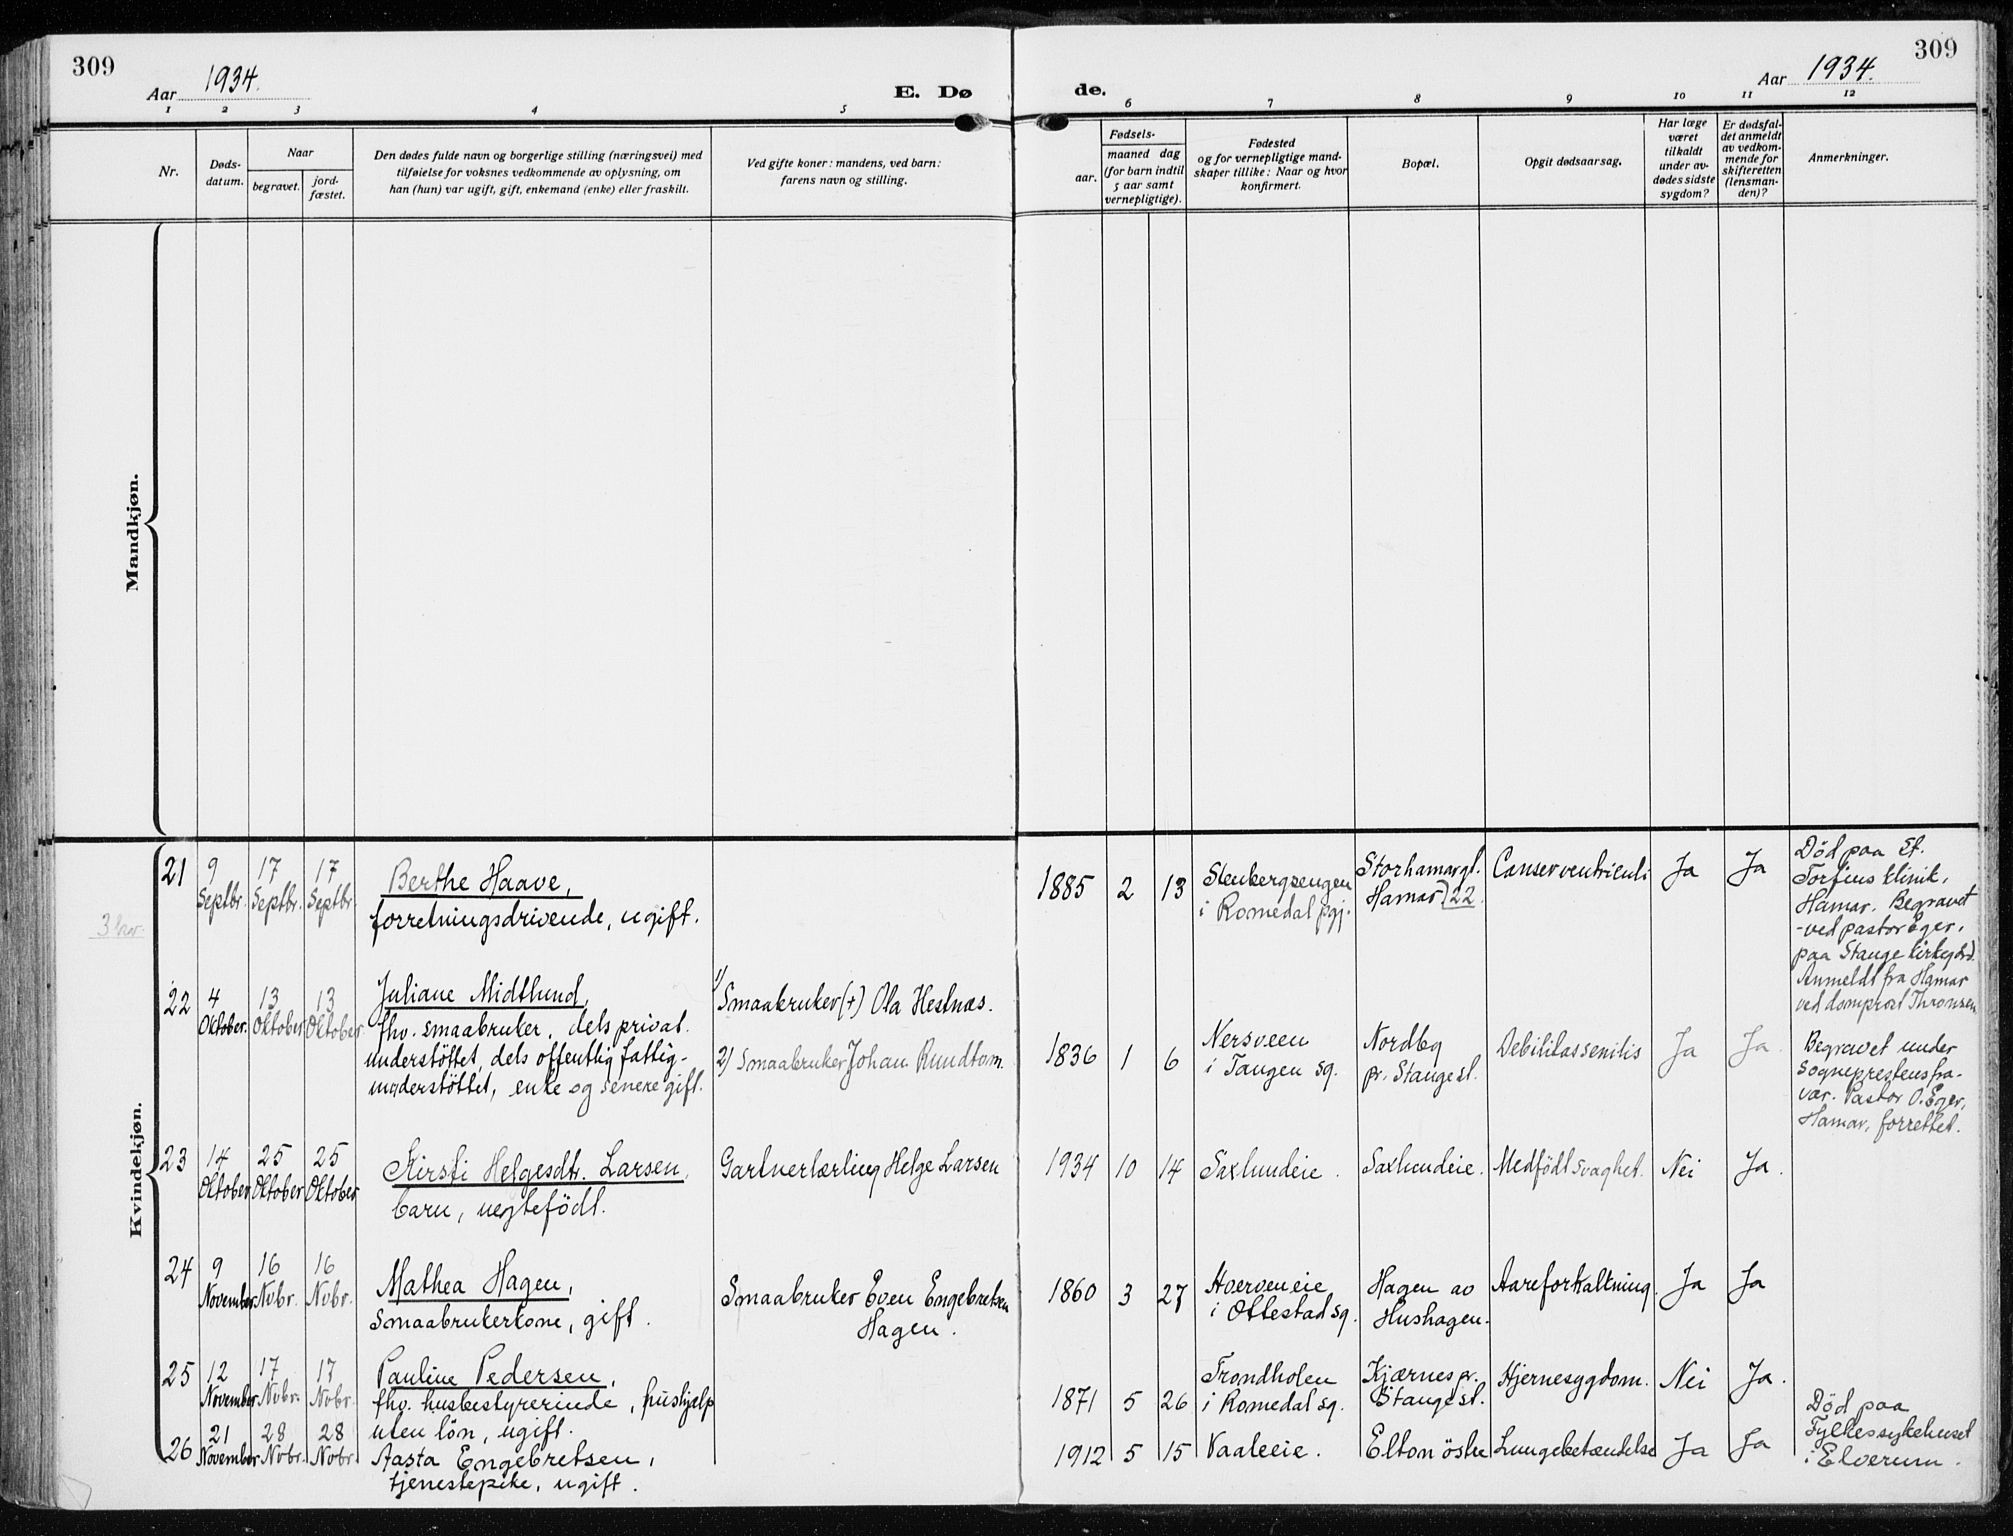 309
Aar 1934.
E. Dø
de.
Aar 1934.
309
1 2 3 4 5 6 7 8 9 10 11 12
Nr.
Døds-
datum.
Naar
begravet.
jord-
fæstet.
Den dødes fulde navn og borgerlige stilling (næringsvei) med
tilføielse for voksnes vedkommende av oplysning, om
han (hun) var ugift, gift, enkemand (enke) eller fraskilt.
Ved gifte koner: mandens, ved barn:
farens navn og stilling.
Fødsels-
aar.
maaned dag
(for barn indtil
5 aar samt
vernepligtige).
Fødested
og for vernepligtige mand-
skaper tillike: Naar og hvor
konfirmert.
Bopæl.
Opgit dødsaarsag.
Har læge
været
tilkaldt
under av-
dødes sidste
sygdom?
Er dødsfal-
det anmeldt
av vedkom-
mende for
skifteretten
(lensman-
den)?
Anmerkninger.
Mandkjøn.
Kvindekjøn.
21
9
Septbr.
17
Septbr.
17
Septbr.
Berthe Haave,
forretningsdrivende, ugift.
1885 2 13
Stenbergsengen
i Romedal pgj.
Storhamargt.
Hamar) 22.
Canser ventriculi
Ja
Ja
Död paa St.
Torfins klinik,
Hamar. Begravet
ved pastor Eger,
paa Stange kirkegård.
Anmeldt fra Hamar
ved domprost Thronsen
22
4
Oktober.
13
Oktober
13
Oktober.
Juliane Midtlund,
fhv. smaabruker, dels privat.
understöttet, dels offentlig fattig-
understöttet, enke og senere gift.
1) Smaabruker (+) Ola Hestnæs.
2) Smaabruker Johan Rundtom.
1836 1 6
Nersveen
i Tangen sg.
Nordbg
pr. Stange st.
Debilitas senilis
Ja
Ja.
Begravet under
sogneprestens fra-
vær. Pastor O. Eger,
Hamar, forrettet.
23
14
Oktober
25
Oktober
25
Oktober
Kirsti Helgesdtr. Larsen,
barn, uegtefödt.
Gartnerlærling Helge Larsen
1934 10 14
Saxlundeie.
Saxlundeie.
Medfödt svaghet.
Nei
Ja.
24
9
November
16
Nvbr.
16
Nvbr.
Mathea Hagen,
Smaabrukerkone, gift.
Smaabruker Even Engebretsen
Hagen.
1860 3 27
Hverveneie
i Ottestad sg.
Hagen av
Hushagen.
Aareforkalkning.
Ja
Ja
25
12
November
17
Nvbr.
17
Nvbr.
Pauline Pedersen,
fhv. husbestyrerinde, hushjælp
uten lön, ugift.
1871 5 26
Trondholen
i Romedal sg.
Kjærnes pr.
Stange st.
Hjernesygdom.
Nei
Ja.
26
21
November
28
Nvbr.
28
Nvbr.
Aasta Engebretsen,
tjenestepike, ugift.
1912 5 15
Vaaleeie.
Elton östre
Lungebetændelse
Ja
Ja
Död paa
Fylkessykehuset
i Elverum.